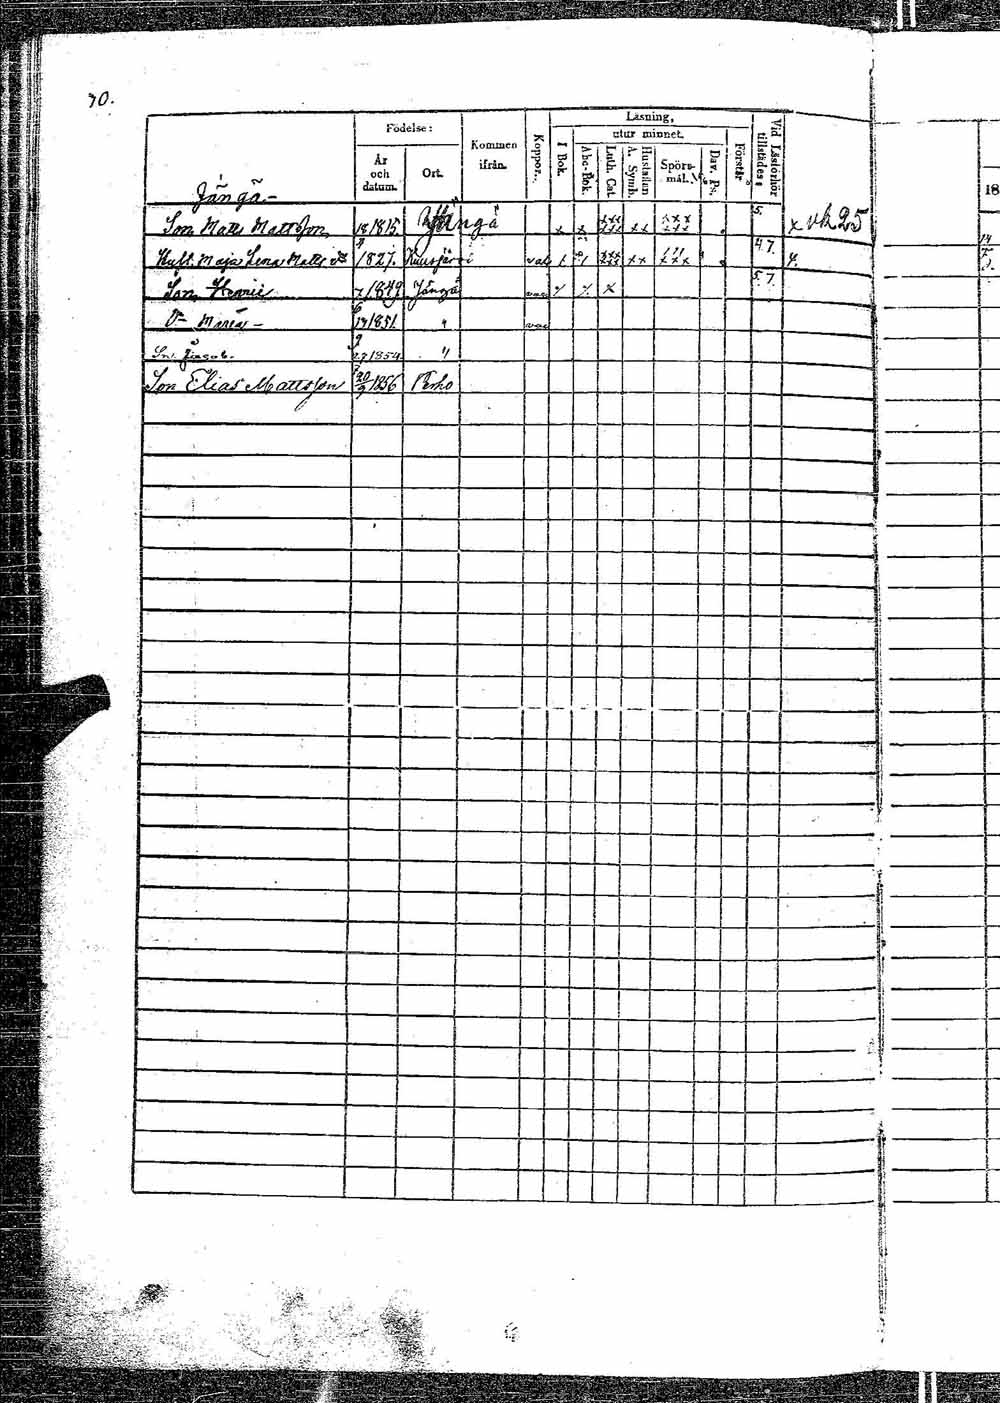 70.
Läsning,
utur minnet.
Födelse:
År och datum.
Ort.
Kommen ifrån.
Koppor.
I Bok.
Abc-Bok.
Luth. Cat.
Hustaflan A. Symb.
Spörs-mål.
Dav. Ps.
Förstår
Vid Läsförhör tillstädes
18
Jängä -
Son Matts Mattsson 18 1815. Jängä x x xxx xxx xx xxx xxx 5. x vk 25
Hust. Maja Lena Matts dr 1827. Kuusjärvi vac xxx xxx xx xxx 4. 7. 4.
Son Henric 7 1849 Jängä vac x 5. 7.
Dr Maria - 1851. " vac
Sn. Jacob. 27 1854. "
Son Elias Mattsson 20/9 1856 Perho